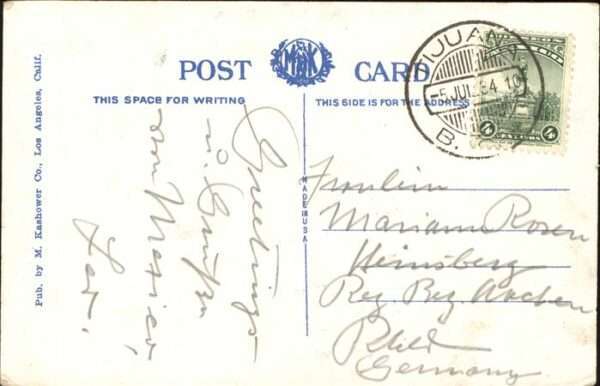 POST CARD
MKK
THIS SPACE FOR WRITING
THIS SIDE IS FOR THE ADDRESS
TIJUANA
-5 JUL 34 10
B.
4 4
Pub. by M. Kashower Co., Los Angeles, Calif.
MADE IN USA
Greetings
u. Grüße
von Mexico,
Fräulein
Mariann Rosen
Heinsberg
Reg Bez Aachen
Rhld
Germany